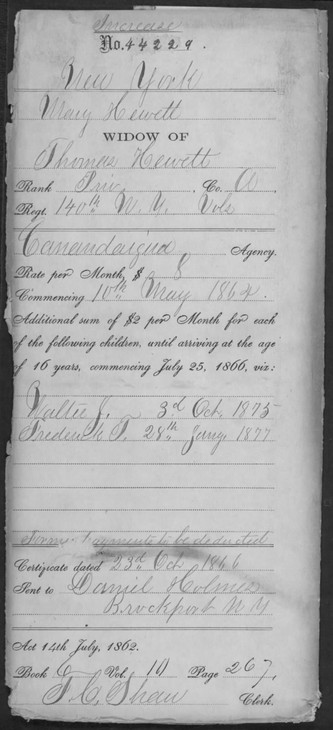 Increase
No. 44229.
New York
Mary Hewett
WIDOW OF
Thomas Hewett
Rank Priv. Co. A
Regt. 140th N. Y. Vols
Canandaigua Agency.
Rate per Month, $ 8
Commencing 10th May 1864.
Additional sum of $2 per Month for each
of the following children, until arriving at the age
of 16 years, commencing July 25, 1866, viz:
Walter J. 3d Oct. 1875
Frederick T. 28th Jany. 1877
Former payments to be deducted
Certificate dated 23d Oct 1866
Sent to Daniel Holmes
Brockport N Y
Act 14th July, 1862.
Book Vol. 10 Page 267.
T. C. Shaw Clerk.